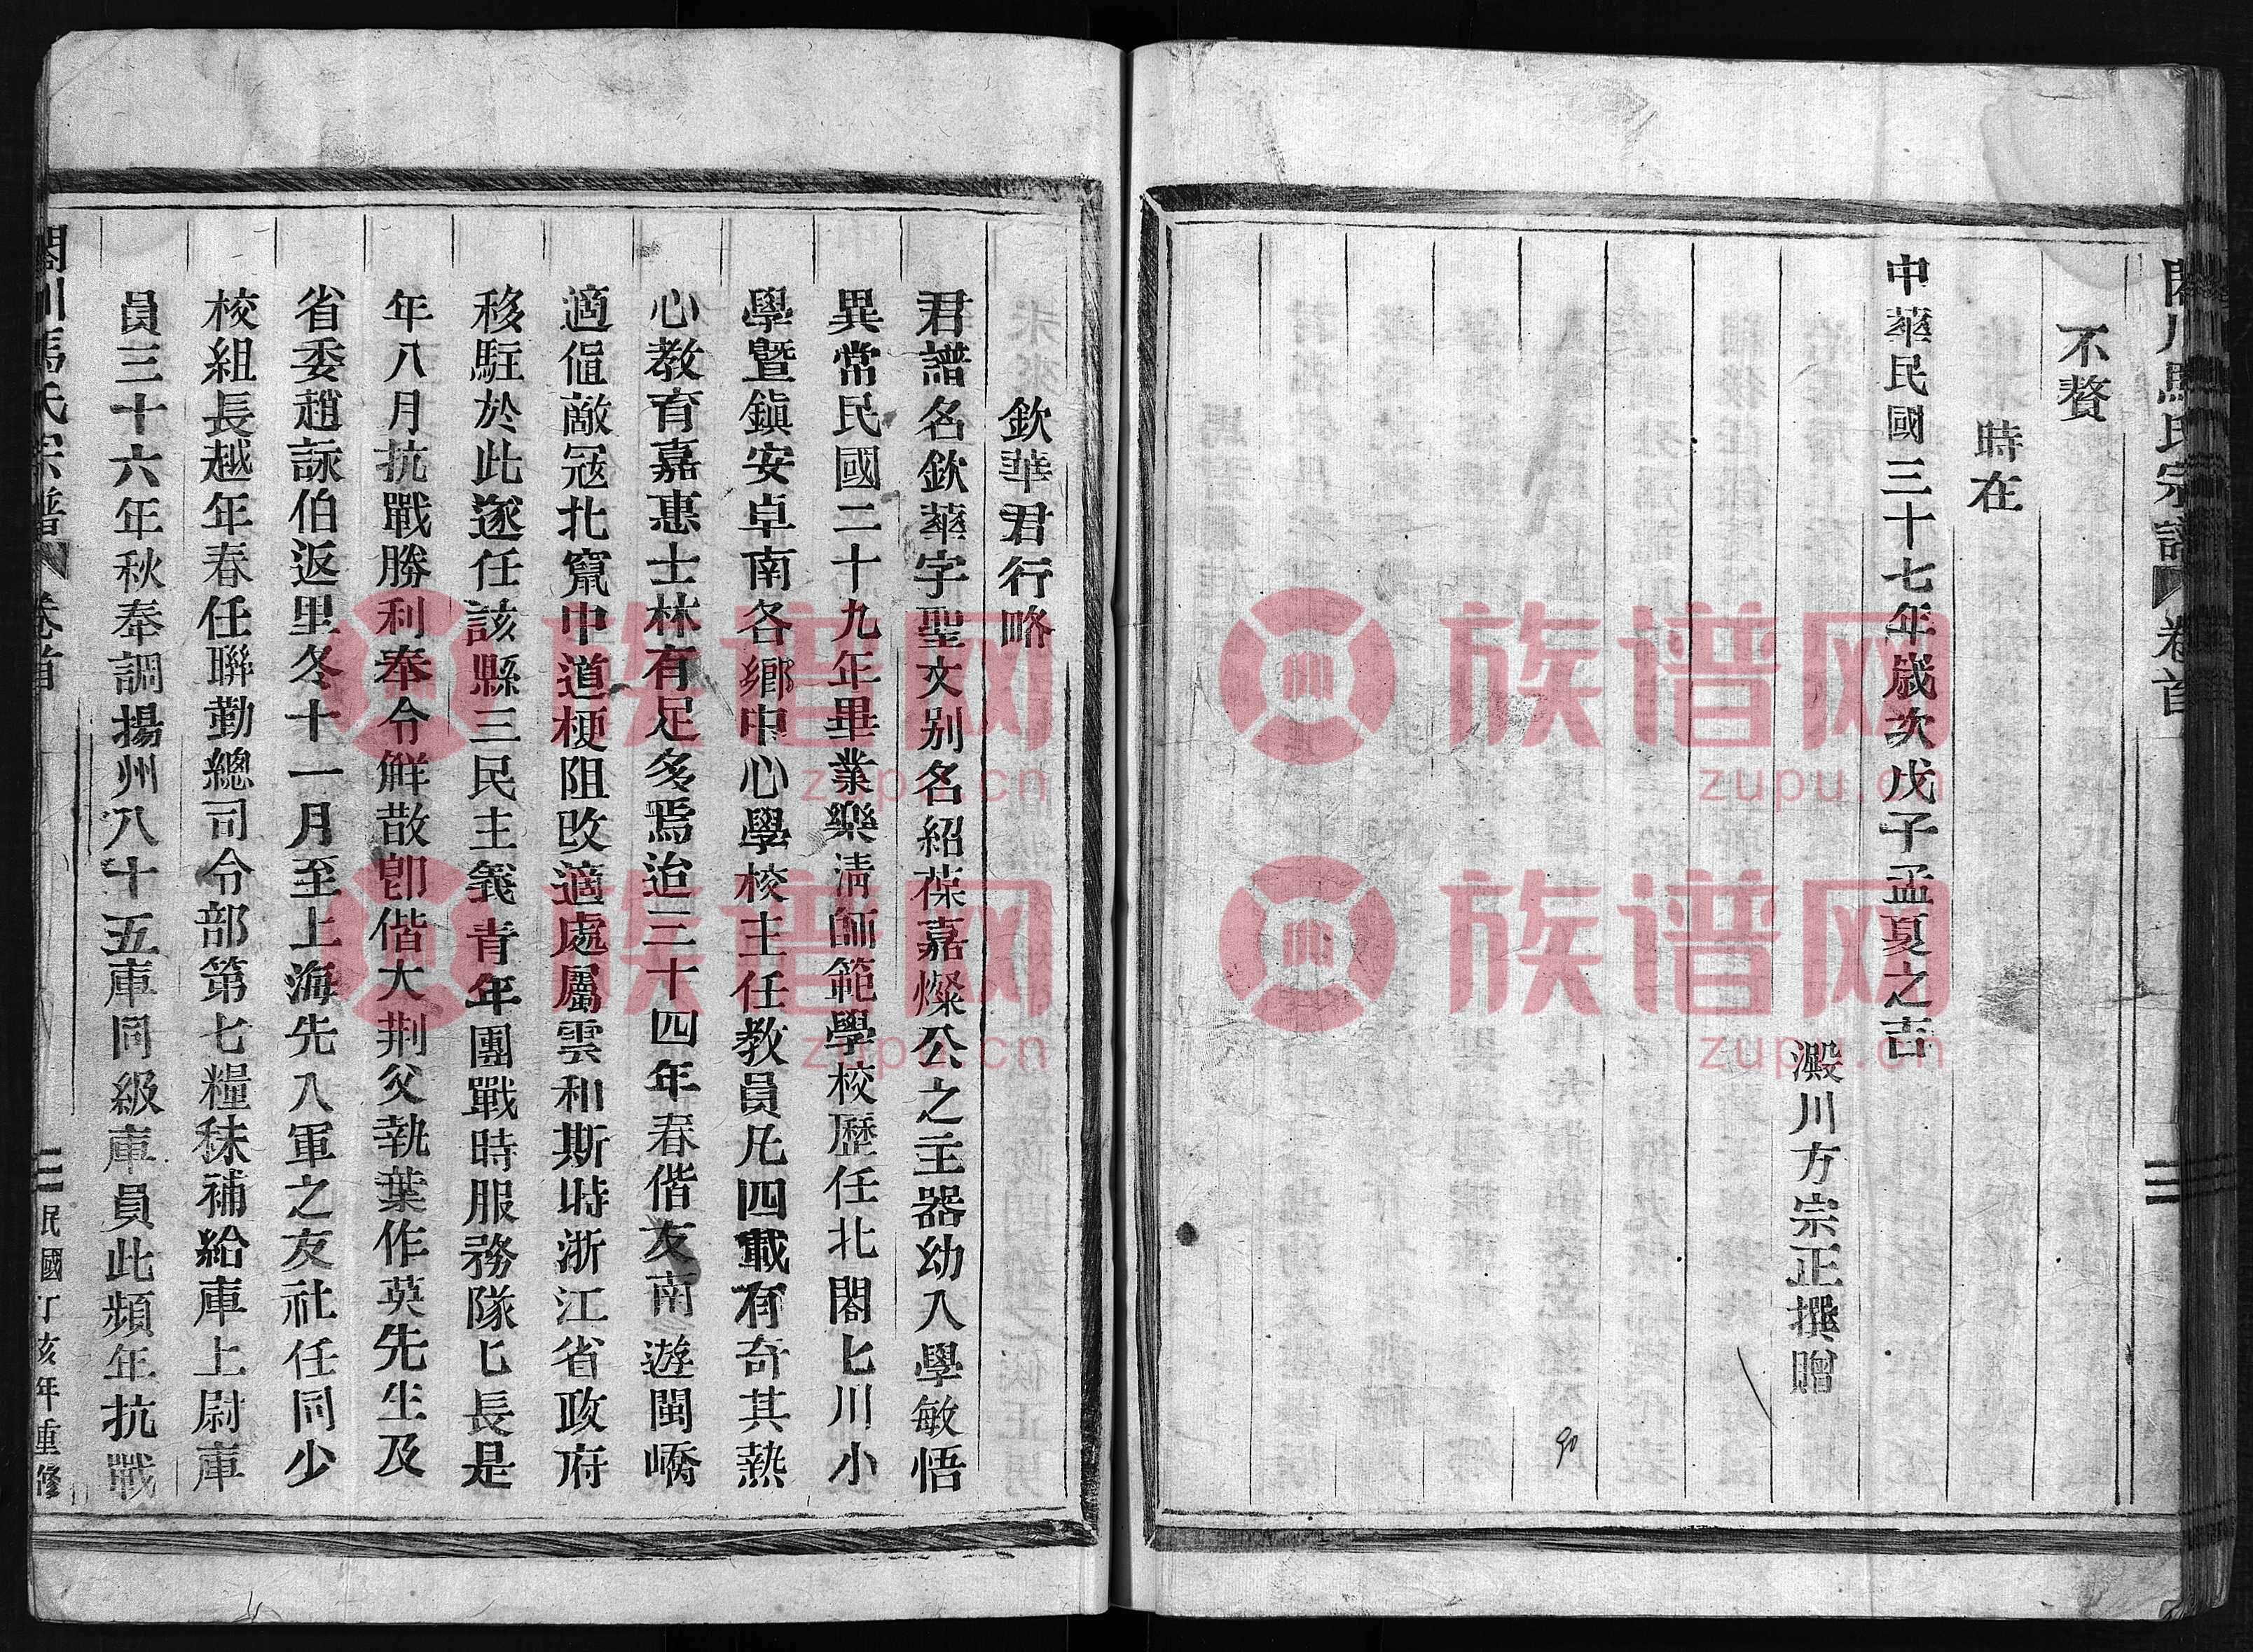 閣川馬氏宗譜 卷首
不贅
時在
中華民國三十七年歲次戊子孟夏之吉
澱川方宗正撰贈
90
欽華君行略
君譜名欽華字聖文别名紹葆嘉燦公之主器幼入學敏悟
異常民國二十九年畢業樂淸師範學校歷任北閣七川小
學暨鎭安卓南各鄉中心學校主任教員凡四載有奇其熱
心教育嘉惠士林有足多焉迨三十四年春偕友南遊閩嶠
適值敵冦北竄中道梗阻改適處屬雲和斯時浙江省政府
移駐於此遂任該縣三民主義青年團戰時服務隊七長是
年八月抗戰勝利奉令解散卽偕大荆父執葉作英先生及
省委趙詠伯返里冬十一月至上海先入軍之友社任同少
校組長越年春任聯勤總司令部第七糧秣補給庫上尉庫
員三十六年秋奉調揚州八十五庫同級庫員此頻年抗戰
閣川馬氏宗譜 卷首 二 民國丁亥年重修
族谱网
zupu.cn
族谱网
zupu.cn
族谱网
zupu.cn
族谱网
zupu.cn